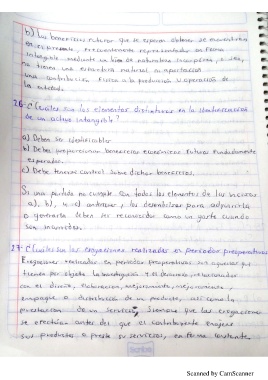 b) Los beneficios futuros que se espera obtener se encuentran
en el presente, frecuentemente representados en forma
intangible mediante un bien de naturaleza incorpórea, o sea,
no tienen una estructura material ni aportación
una contribución física a la producción u operación de
la entidad.
26- ¿Cuáles son los elementos distintivos en la identificación
de un activo intangible?
a) Deben ser identificables
b) Deben proporcionar beneficios económicos futuros fundadamente
esperados.
c) Debe tenerse control sobre dichos beneficios.
Si una partida no cumple con todos los elementos de los incisos
a), b), y c) anteriores, las erogaciones para adquirirla
o generarla deben ser reconocidos como un gasto cuando
son incurridos.
27- ¿Cuáles son las erogaciones realizadas en periodos preoperativos
Erogaciones realizadas en periodos preoperativos son aquellas que
tienen por objeto la investigación y el desarrollo, relacionados
con el diseño, elaboración, mejoramiento,
empaque o distribución de un producto, así como la
prestación de un servicio, siempre que las erogaciones
se efectúen antes de que el contribuyente enajene
sus productos o preste sus servicios, en forma constante.
Scribe
Scanned by CamScanner